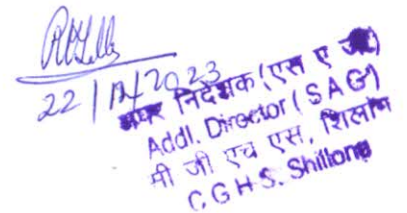 22/12/2023
अपर निदेशक (एस ए जी)
Addl. Director (SAG)
सी जी एच एस, शिलांग
C.G.H.S. Shillong